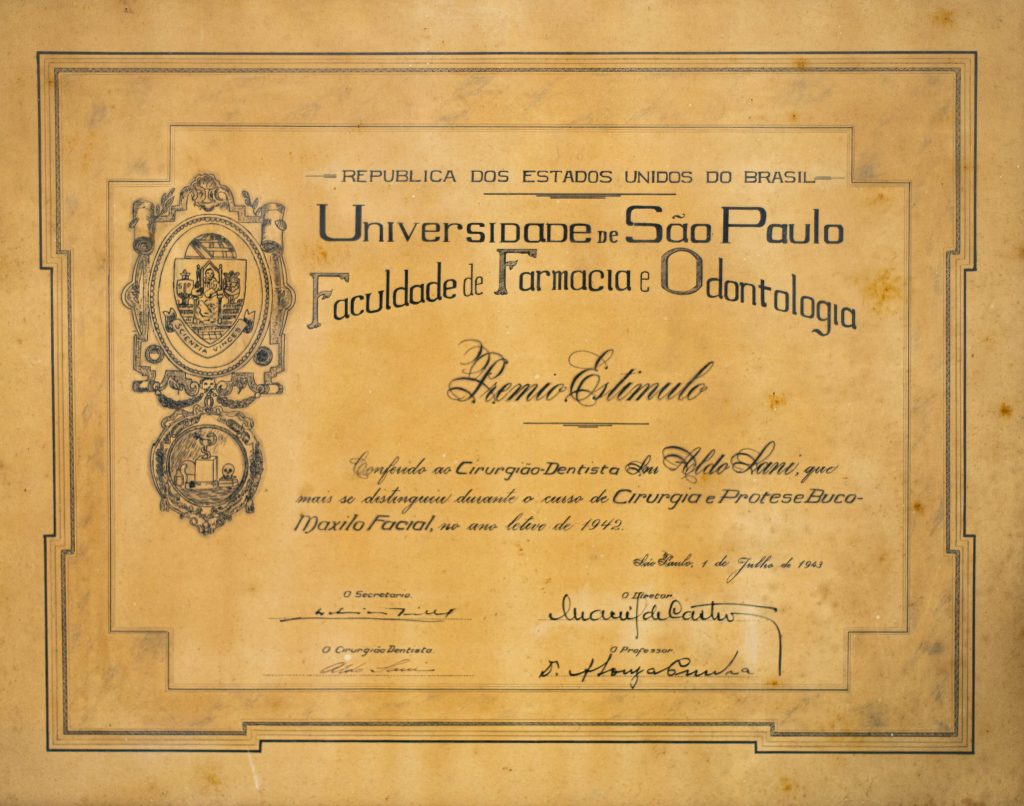 REPUBLICA DOS ESTADOS UNIDOS DO BRASIL
UNIVERSIDADE DE SÃO PAULO
Faculdade de Farmacia e Odontologia
SCIENTIA VINCES
Premio Estimulo
Conferido ao Cirurgião-Dentista Snr Aldo Lani, que
mais se distinguiu durante o curso de Cirurgia e Protese Buco-
Maxilo Facial, no ano letivo de 1942.
São Paulo, 1 de Julho de 1943
O Secretario.
O Diretor
de Castro
O Cirurgião Dentista.
Aldo Lani
O Professor.
D. A Souza Cunha